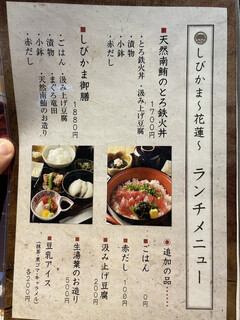 しびかま～花蓮～ ランチメニュー
■天然南鮪のとろ鉄火丼
1700円
・とろ鉄火丼・汲み上げ豆腐
・小鉢
・漬物
・赤だし
■しびかま御膳
1880円
・ごはん・汲み上げ豆腐
・漬物・まぐろ竜田
・小鉢・天然南鮪のお造り
・赤だし
◉追加の品……
・ごはん 0円
・赤だし 100円
・汲み上げ豆腐 200円
・生湯葉のお造り 500円
・豆乳アイス
(抹茶・黒ゴマ・キャラメル) 各200円